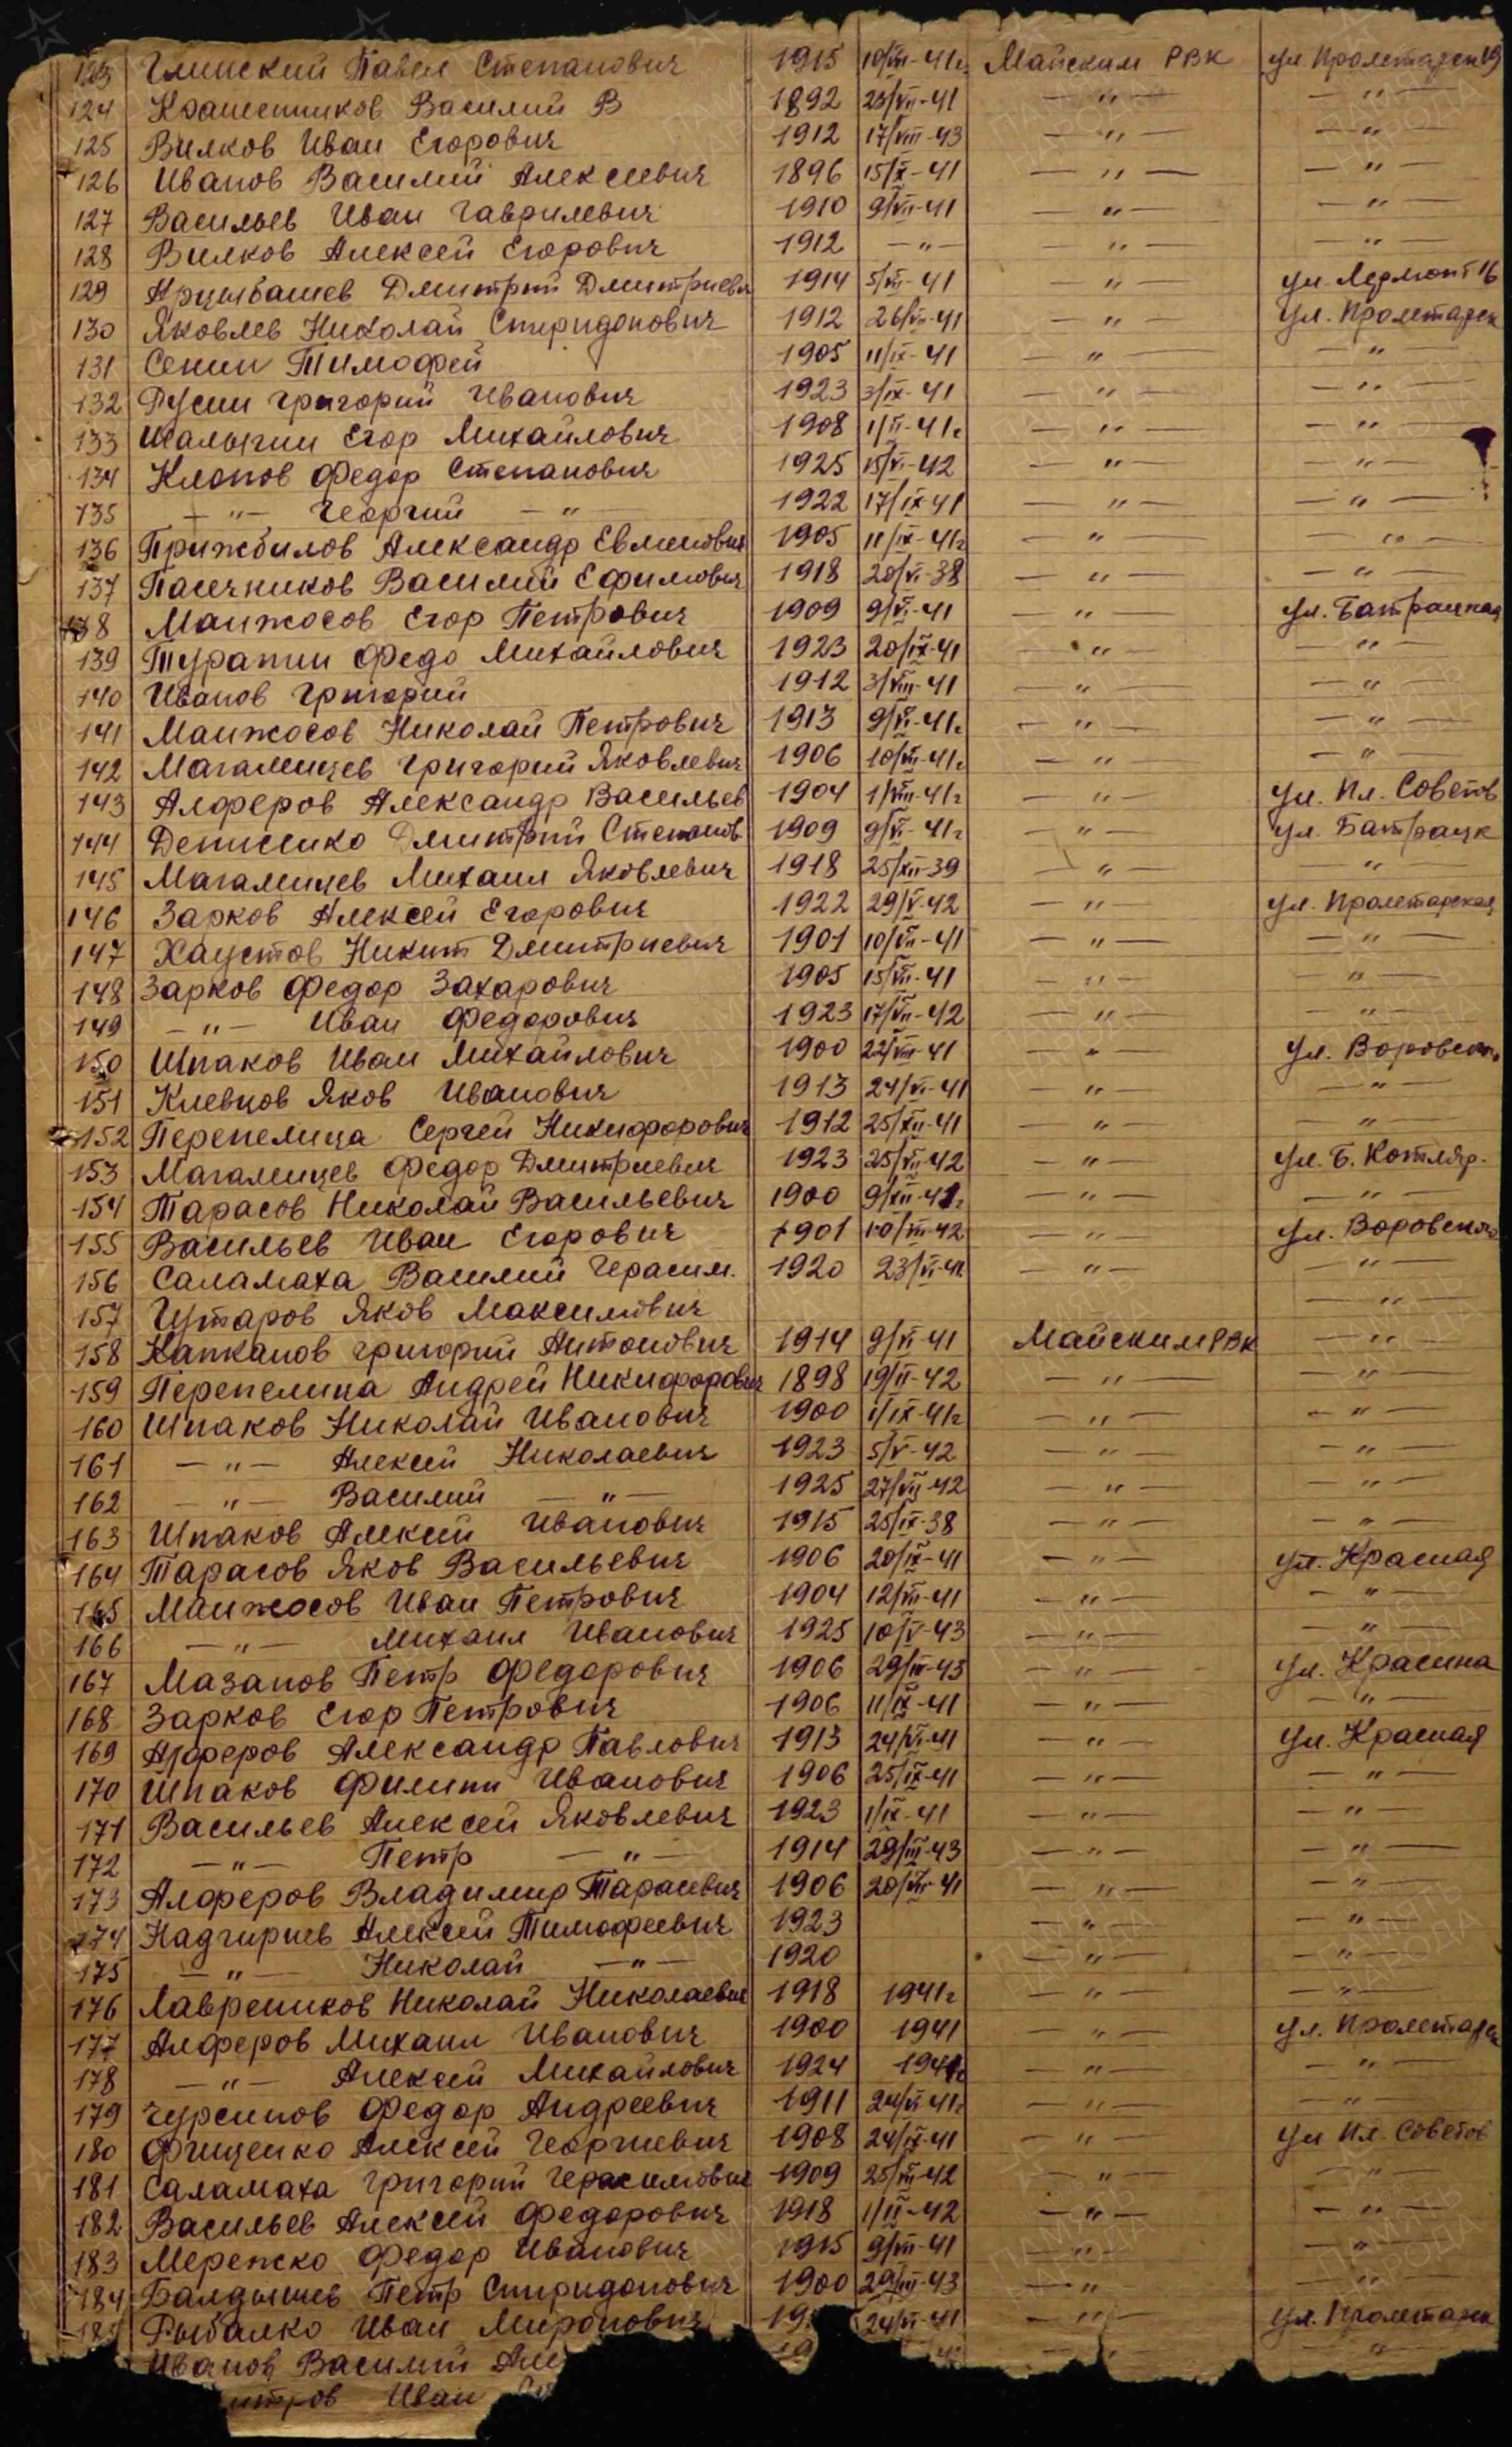 123 Глинский Павел Степанович 1915 10/VII-41г. Майским РВК ул. Пролетарск 19
124 Крашенников Василий В 1892 23/VII-41 — " — — " —
125 Вилков Иван Егорович 1912 17/VIII-43 — " — — " —
126 Иванов Василий Алексеевич 1896 15/X-41 — " — — " —
127 Васильев Иван Гаврилевич 1910 9/VII-41 — " — — " —
128 Вилков Алексей Егорович 1912 — " — — " — — " —
129 Арцыбашев Дмитрий Дмитриеви 1914 5/VII-41 — " — ул. Лермонт 16
130 Яковлев Николай Спиридонович 1912 26/VII-41 — " — ул. Пролетарск
131 Сенин Тимофей 1905 11/IX-41 — " — — " —
132 Русин Григорий Иванович 1923 3/IX-41 — " — — " —
133 Шалыгин Егор Михайлович 1908 1/VI-41г — " — — " —
134 Клопов Федор Степанович 1925 15/VI-42 — " — — " —
135 — " — Георгий — " — 1922 17/IX-41 — " — — " —
136 Прижбилов Александр Евминович 1905 11/IX-41г — " — — " —
137 Пасечников Василий Ефимович 1918 20/VI-38 — " — — " —
138 Манжосов Егор Петрович 1909 9/VI-41 — " — ул. Батрацкая
139 Турапин Федо Михайлович 1923 20/IX-41 — " — — " —
140 Иванов Григорий 1912 3/VIII-41 — " — — " —
141 Манжосов Николай Петрович 1913 9/VI-41г — " — — " —
142 Магамицев Григорий Яковлевич 1906 10/VII-41г — " — — " —
143 Алферов Александр Васильев 1904 1/VIII-41г — " — ул. Пл. Советов
144 Денисенко Дмитрий Степанов 1909 9/VI-41г — " — ул. Батрацк
145 Магамицев Михаил Яковлевич 1918 25/XII-39 — " — — " —
146 Зарков Алексей Егорович 1922 29/V-42 — " — ул. Пролетарская
147 Хаустов Никит Дмитриевич 1901 10/VII-41 — " — — " —
148 Зарков Федор Захарович 1905 15/VII-41 — " — — " —
149 — " — Иван Федорович 1923 17/VII-42 — " — — " —
150 Шпаков Иван Михайлович 1900 22/VIII-41 — " — ул. Воровского
151 Клевцов Яков Иванович 1913 24/VI-41 — " — — " —
152 Перепелица Сергей Никифорович 1912 25/XII-41 — " — — " —
153 Магамицев Федор Дмитриевич 1923 25/VII-42 — " — ул. Б. Котляр.
154 Тарасов Николай Васильевич 1900 9/XII-41г — " — — " —
155 Васильев Иван Егорович 1901 10/III-42 — " — ул. Воровского
156 Саламаха Василий Герасим. 1920 23/VI-41 — " — — " —
157 Гутаров Яков Максимович — " —
158 Капканов Григорий Антонович 1914 9/VI-41 Майским РВК — " —
159 Перепелица Андрей Никифорович 1898 19/II-42 — " — — " —
160 Шпаков Николай Иванович 1900 1/IX-41г — " — — " —
161 — " — Алексей Николаевич 1923 5/V-42 — " — — " —
162 — " — Василий — " — 1925 27/VII-42 — " — — " —
163 Шпаков Алексей Иванович 1915 25/IX-38 — " — — " —
164 Тарасов Яков Васильевич 1906 20/IX-41 — " — ул. Красная
165 Манжосов Иван Петрович 1904 12/VII-41 — " — — " —
166 — " — Михаил Иванович 1925 10/V-43 — " — — " —
167 Мазанов Петр Федорович 1906 29/III-43 — " — ул. Красина
168 Зарков Егор Петрович 1906 11/IX-41 — " — — " —
169 Алферов Александр Павлович 1913 24/VI-41 — " — ул. Красная
170 Шпаков Филипп Иванович 1906 25/IX-41 — " — — " —
171 Васильев Алексей Яковлевич 1923 1/IX-41 — " — — " —
172 — " — Петр — " — 1914 29/III-43 — " — — " —
173 Алферов Владимир Тарасевич 1906 20/VII-41 — " — — " —
174 Надгириев Алексей Тимофеевич 1923 — " — — " —
175 — " — Николай — " — 1920 — " — — " —
176 Лавреников Николай Николаевич 1918 1941г — " — — " —
177 Алферов Михаил Иванович 1900 1941 — " — ул. Пролетарск
178 — " — Алексей Михайлович 1924 1941г — " — — " —
179 Чурсинов Федор Андреевич 1911 24/VI-41г — " — — " —
180 Фищенко Алексей Георгиевич 1908 24/IX-41 — " — ул Пл. Советов
181 Саламаха Григорий Герасимович 1909 25/III-42 — " — — " —
182 Васильев Алексей Федорович 1918 1/II-42 — " — — " —
183 Мережко Федор Иванович 1915 9/VII-41 — " — — " —
184 Балдышев Петр Спиридонович 1900 29/III-43 — " — — " —
185 Рыбалко Иван Миронович 19 24/VI-41 — " — ул. Пролетарск
Иванов Василий Але 19 — " —
итров Иван